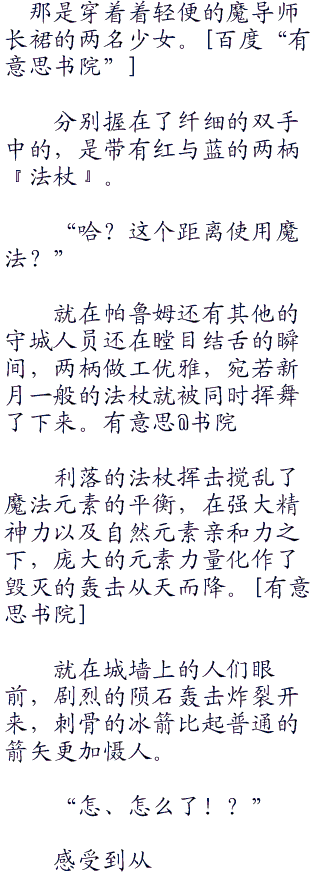 那是穿着着轻便的魔导师
长裙的两名少女。[百度“有
意思书院”]
分别握在了纤细的双手
中的，是带有红与蓝的两柄
『法杖』。
“哈？这个距离使用魔
法？”
就在帕鲁姆还有其他的
守城人员还在瞠目结舌的瞬
间，两柄做工优雅，宛若新
月一般的法杖就被同时挥舞
了下来。有意思@书院
利落的法杖挥击搅乱了
魔法元素的平衡，在强大精
神力以及自然元素亲和力之
下，庞大的元素力量化作了
毁灭的轰击从天而降。[有意
思书院]
就在城墙上的人们眼
前，剧烈的陨石轰击炸裂开
来，刺骨的冰箭比起普通的
箭矢更加慑人。
“怎、怎么了！？”
感受到从